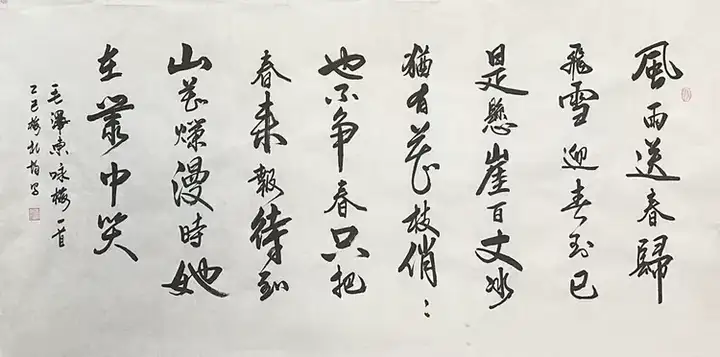 風雨送春歸
飛雪迎春到已
是懸崖百丈冰
猶有花枝俏〻
也不争春只把
春来報待到
山花爛漫時她
在叢中笑
毛澤東咏梅一首
乙巳